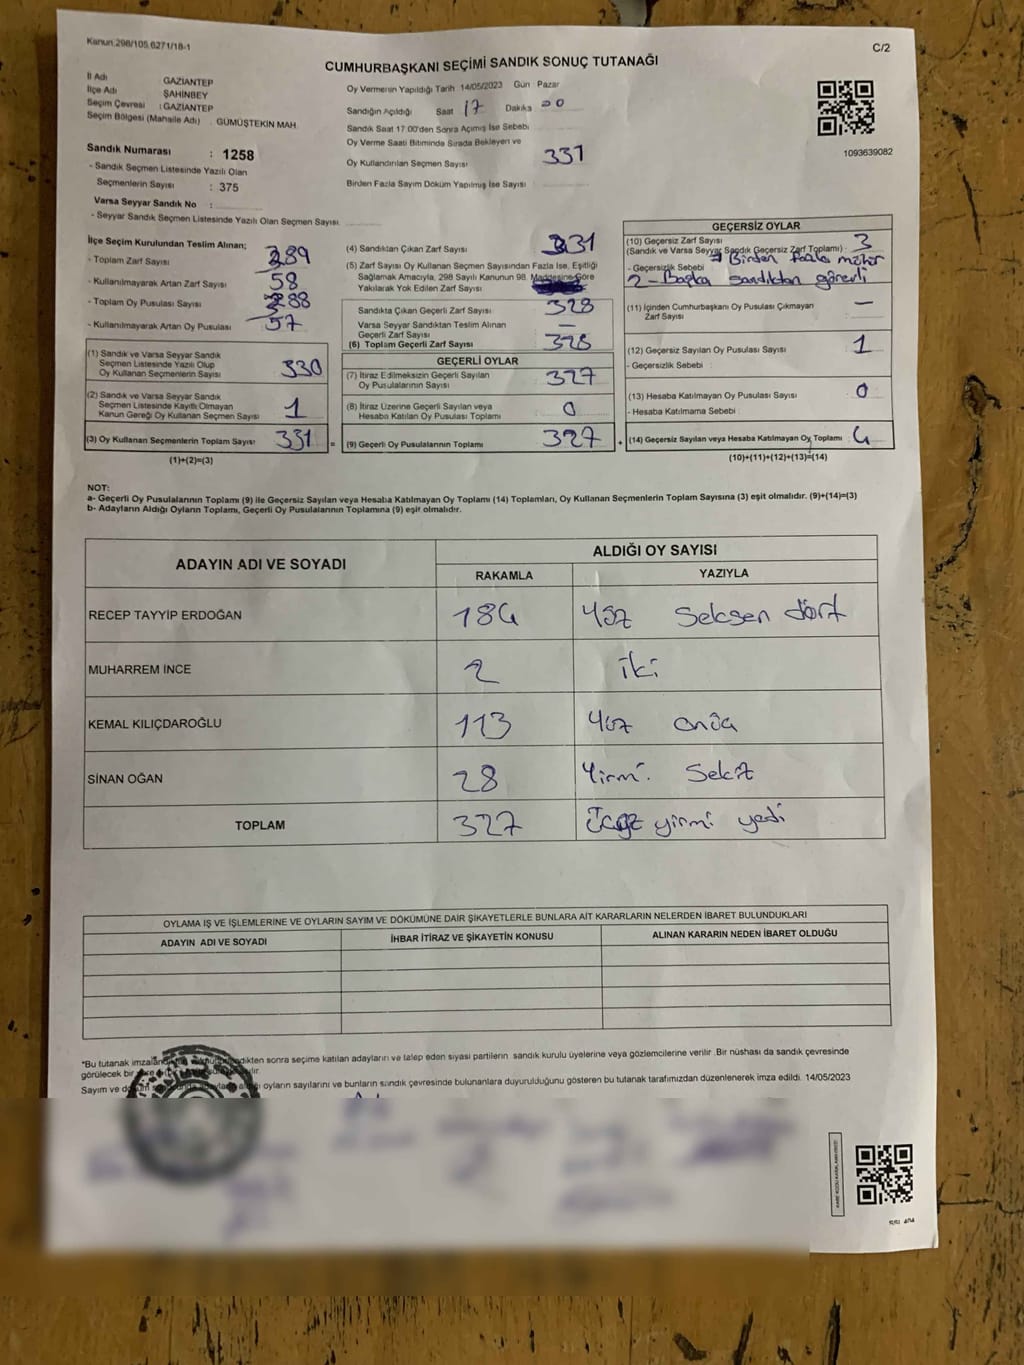 Kanun.298/105.6271/18-1
C/2
CUMHURBAŞKANI SEÇİMİ SANDIK SONUÇ TUTANAĞI
İl Adı : GAZİANTEP
İlçe Adı : ŞAHİNBEY
Seçim Çevresi : GAZİANTEP
Seçim Bölgesi (Mahalle Adı) : GÜMÜŞTEKİN MAH.
Sandık Numarası : 1258
- Sandık Seçmen Listesinde Yazılı Olan
Seçmenlerin Sayısı : 375
Varsa Seyyar Sandık No :
- Seyyar Sandık Seçmen Listesinde Yazılı Olan Seçmen Sayısı
Oy Vermenin Yapıldığı Tarih 14/05/2023 Gün Pazar
Sandığın Açıldığı Saat 17 Dakika 00
Sandık Saat 17.00'den Sonra Açılmış İse Sebebi
Oy Verme Saati Bitiminde Sırada Bekleyen ve
Oy Kullandırılan Seçmen Sayısı 331
Birden Fazla Sayım Döküm Yapılmış İse Sayısı
1093639082
İlçe Seçim Kurulundan Teslim Alınan;
- Toplam Zarf Sayısı 389
- Kullanılmayarak Artan Zarf Sayısı 58
- Toplam Oy Pusulası Sayısı 388
- Kullanılmayarak Artan Oy Pusulası 57
(1) Sandık ve Varsa Seyyar Sandık
Seçmen Listesinde Yazılı Olup
Oy Kullanan Seçmenlerin Sayısı 330
(2) Sandık ve Varsa Seyyar Sandık
Seçmen Listesinde Kayıtlı Olmayan
Kanun Gereği Oy Kullanan Seçmen Sayısı 1
(3) Oy Kullanan Seçmenlerin Toplam Sayısı 331 =
(1)+(2)=(3)
(4) Sandıktan Çıkan Zarf Sayısı 331
(5) Zarf Sayısı Oy Kullanan Seçmen Sayısından Fazla İse, Eşitliği
Sağlamak Amacıyla, 298 Sayılı Kanunun 98. Maddesine Göre
Yakılarak Yok Edilen Zarf Sayısı
Sandıkta Çıkan Geçerli Zarf Sayısı 328
Varsa Seyyar Sandıktan Teslim Alınan
Geçerli Zarf Sayısı —
(6) Toplam Geçerli Zarf Sayısı 328
GEÇERLİ OYLAR
(7) İtiraz Edilmeksizin Geçerli Sayılan
Oy Pusulalarının Sayısı 327
(8) İtiraz Üzerine Geçerli Sayılan veya
Hesaba Katılan Oy Pusulası Toplamı 0
(9) Geçerli Oy Pusulalarının Toplamı 327 +
GEÇERSİZ OYLAR
(10) Geçersiz Zarf Sayısı 3
(Sandık ve Varsa Seyyar Sandık Geçersiz Zarf Toplamı)
- Geçersizlik Sebebi 1 Birden fazla mühür
2 - Başka sandıktan görevli
(11) İçinden Cumhurbaşkanı Oy Pusulası Çıkmayan
Zarf Sayısı —
(12) Geçersiz Sayılan Oy Pusulası Sayısı 1
- Geçersizlik Sebebi
(13) Hesaba Katılmayan Oy Pusulası Sayısı 0
- Hesaba Katılmama Sebebi
(14) Geçersiz Sayılan veya Hesaba Katılmayan Oy Toplamı 4
(10)+(11)+(12)+(13)=(14)
NOT:
a- Geçerli Oy Pusulalarının Toplamı (9) ile Geçersiz Sayılan veya Hesaba Katılmayan Oy Toplamı (14) Toplamları, Oy Kullanan Seçmenlerin Toplam Sayısına (3) eşit olmalıdır. (9)+(14)=(3)
b- Adayların Aldığı Oyların Toplamı, Geçerli Oy Pusulalarının Toplamına (9) eşit olmalıdır.
ADAYIN ADI VE SOYADI ALDIĞI OY SAYISI
RAKAMLA YAZIYLA
RECEP TAYYİP ERDOĞAN 184 Yüz Seksen dört
MUHARREM İNCE 2 iki
KEMAL KILIÇDAROĞLU 113 Yüz onüç
SİNAN OĞAN 28 Yirmi Sekiz
TOPLAM 327 üçyüz yirmi yedi
OYLAMA İŞ VE İŞLEMLERİNE VE OYLARIN SAYIM VE DÖKÜMÜNE DAİR ŞİKAYETLERLE BUNLARA AİT KARARLARIN NELERDEN İBARET BULUNDUKLARI
ADAYIN ADI VE SOYADI İHBAR İTİRAZ VE ŞİKAYETİN KONUSU ALINAN KARARIN NEDEN İBARET OLDUĞU
*Bu tutanak sonra seçime katılan adayların ve talep eden siyasi partilerin sandık kurulu üyelerine veya gözlemcilerine verilir. Bir nüshası da sandık çevresinde
görülecek bir
Sayım ve oyların sayılarını ve bunların sandık çevresinde bulunanlara duyurulduğunu gösteren bu tutanak tarafımızdan düzenlenerek imza edildi. 14/05/2023